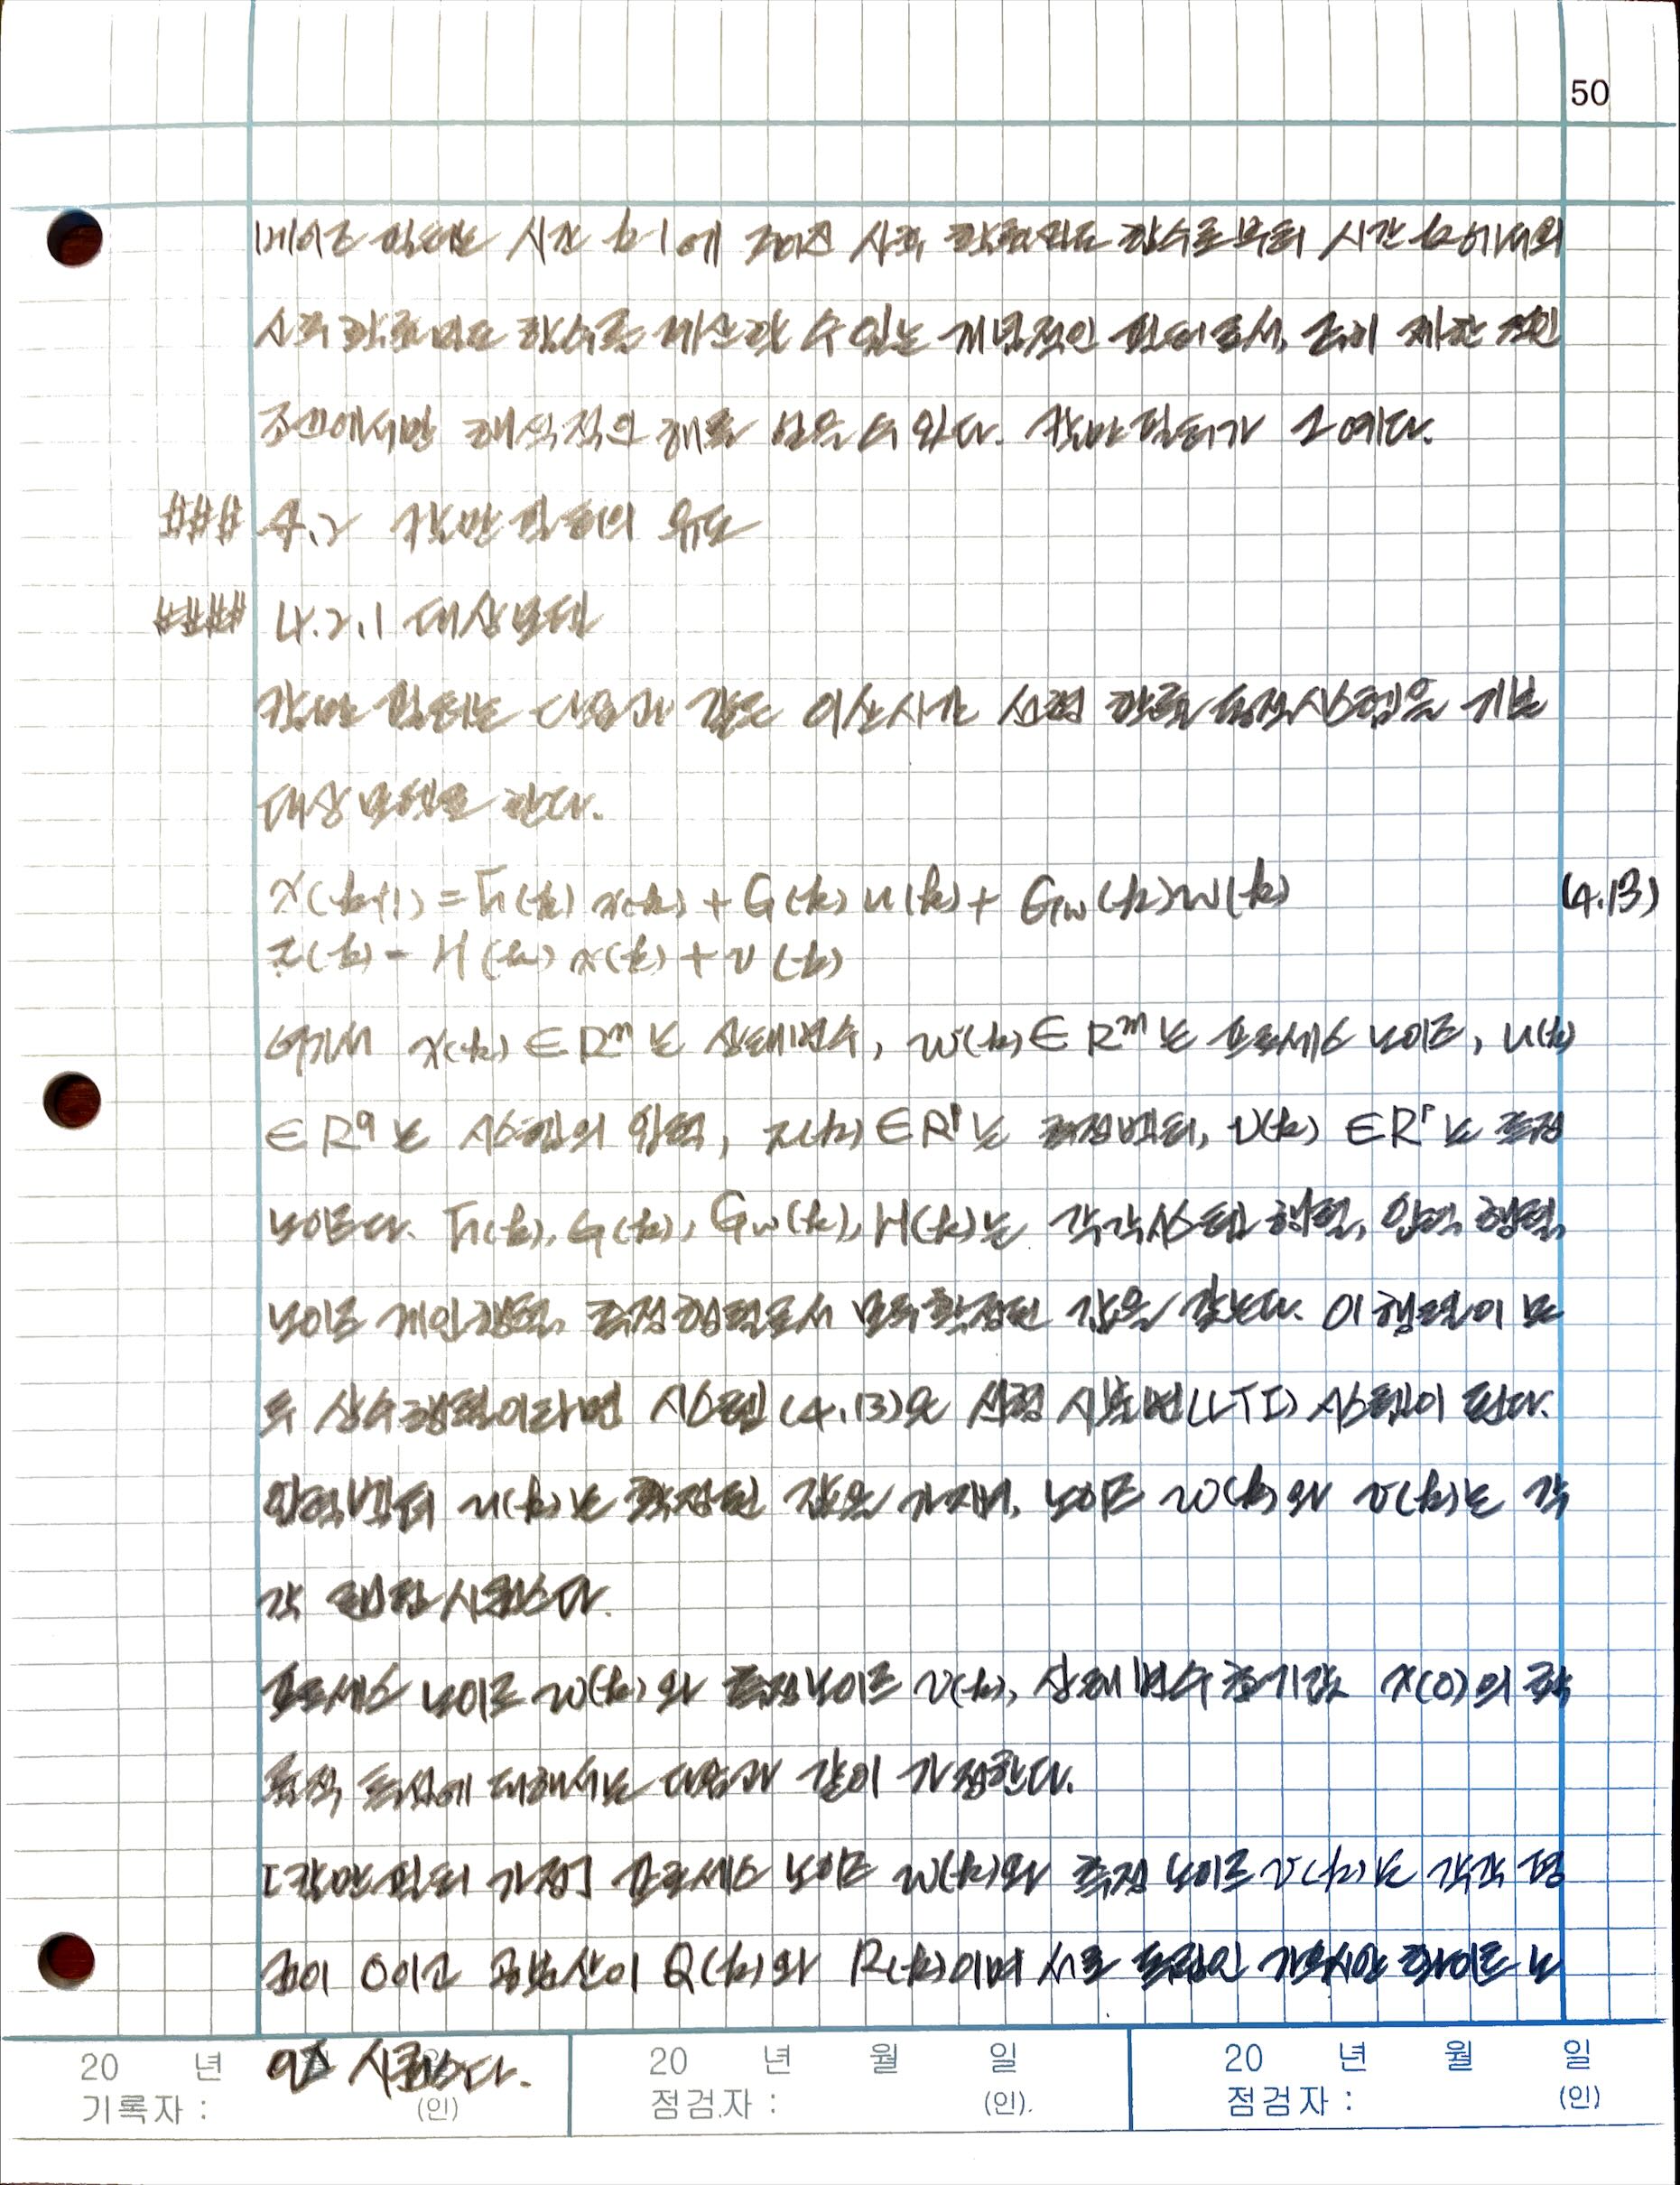 50
베이즈 필터는 시간 k-1에 주어진 사후 확률밀도 함수로부터 시간 k에서의
사후 확률밀도 함수를 계산할 수 있는 개념적인 필터로서, 극히 제한적인
조건에서만 해석적인 해를 얻을 수 있다. 칼만필터가 그 예다.
### 4.2 칼만필터의 유도
#### 4.2.1 대상모델
칼만 필터는 다음과 같은 이산시간 선형 확률 동적시스템을 기본
대상 모델로 한다.
x(k+1) = F(k) x(k) + G(k) u(k) + Gw(k) w(k) (4.13)
z(k) = H(k) x(k) + v(k)
여기서 x(k) ∈ Rⁿ는 상태변수, w(k) ∈ Rᵐ는 프로세스 노이즈, u(k)
∈ R^q는 시스템의 입력, z(k) ∈ R^p는 측정벡터, v(k) ∈ R^p는 측정
노이즈다. F(k), G(k), Gw(k), H(k)는 각각 시스템 행렬, 입력 행렬,
노이즈 게인행렬, 측정행렬로서 모두 확정된 값을 갖는다. 이 행렬이 모
두 상수행렬이라면 시스템 (4.13)은 선형 시불변(LTI) 시스템이 된다.
입력벡터 u(k)는 확정된 값을 가지며, 노이즈 w(k)와 v(k)는 각
각 랜덤 시퀀스다.
프로세스 노이즈 w(k)와 측정노이즈 v(k), 상태변수 초기값 x(0)의 확
률적 특성에 대해서는 다음과 같이 가정한다.
[칼만필터 가정] 프로세스 노이즈 w(k)와 측정 노이즈 v(k)는 각각 평
균이 0이고 공분산이 Q(k)와 R(k)이며 서로 독립인 가우시안 화이트 노
이즈 시퀀스다.
20 년 월 일 20 년 월 일 20 년 월 일
기록자 : (인) 점검자 : (인). 점검자 : (인)